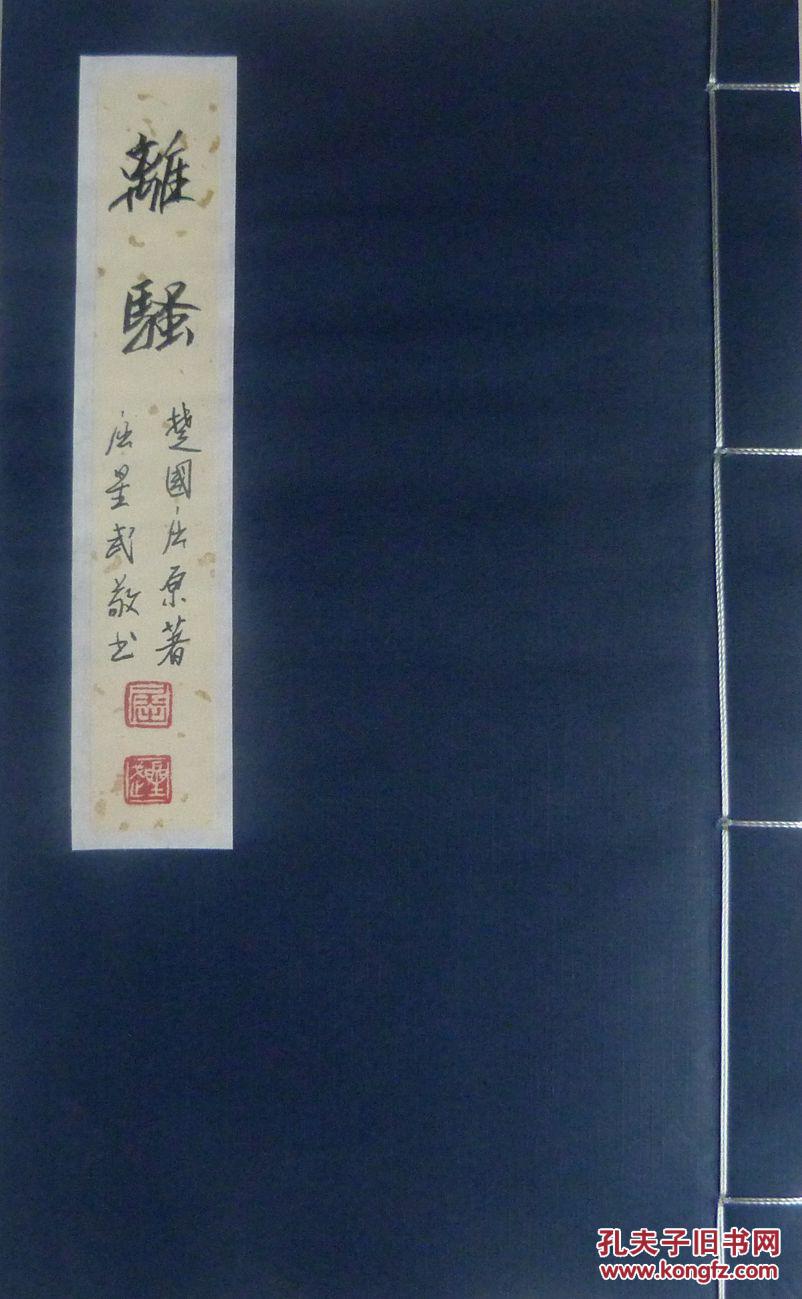 離騷
楚國屈原著
屈星武敬书
孔夫子旧书网
www.kongfz.com